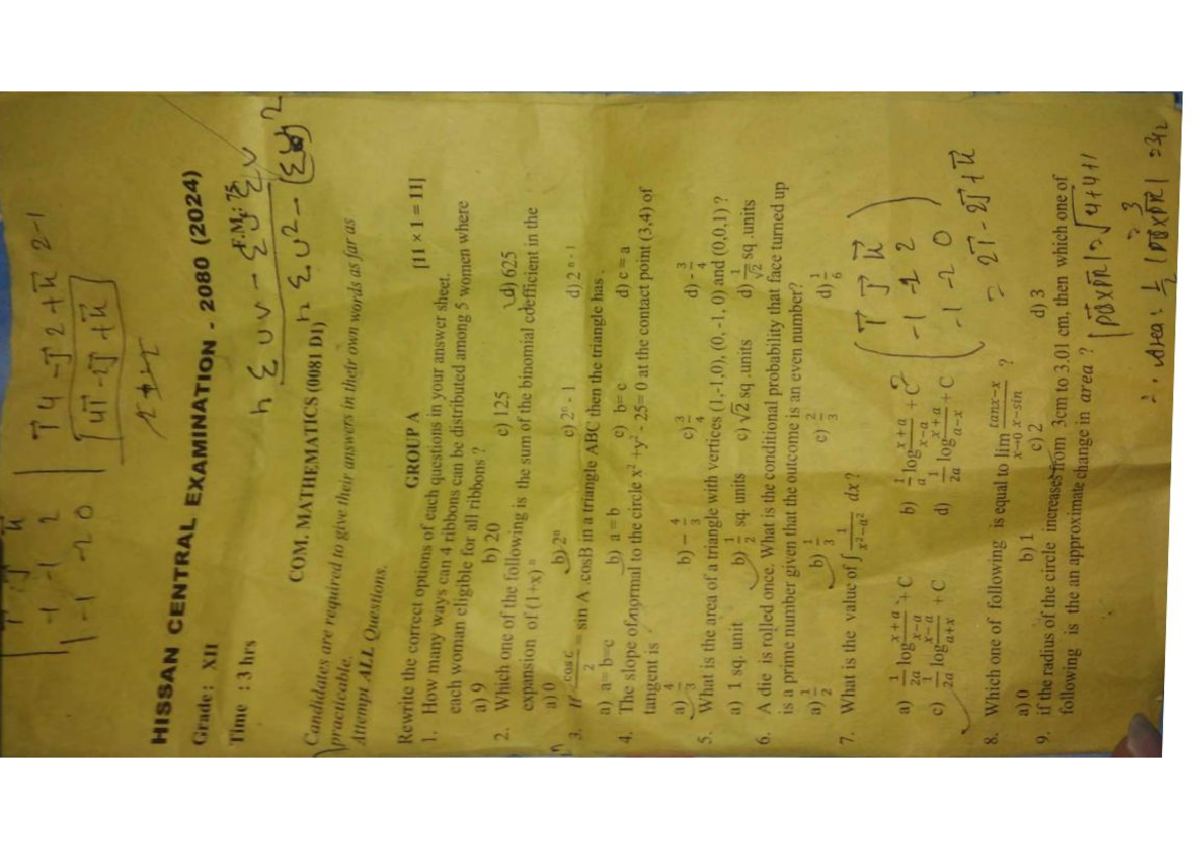 T 4 - J 2 + k 2-1
HISSAN CENTRAL EXAMINATION - 2080 (2024)
Grade : XII F.M.: 75
Time : 3 hrs
COM. MATHEMATICS (0081 D1)
Candidates are required to give their answers in their own words as far as
practicable.
Attempt ALL Questions.
GROUP A
Rewrite the correct options of each questions in your answer sheet. [11 × 1 = 11]
1. How many ways can 4 ribbons can be distributed among 5 women where
each woman eligible for all ribbons ?
a) 9 b) 20 c) 125 d) 625
2. Which one of the following is the sum of the binomial coefficient in the
expansion of (1+x)ⁿ
a) 0 b) 2ⁿ c) 2ⁿ - 1 d) 2ⁿ⁻¹
3. If cos C/2 = sin A .cosB in a triangle ABC then the triangle has
a) a=b=c b) a = b c) b=c d) c = a
4. The slope of normal to the circle x² +y² - 25= 0 at the contact point (3,4) of
tangent is
a) 4/3 b) - 4/3 c) 3/4 d) - 3/4
5. What is the area of a triangle with vertices (1,-1,0), (0, -1, 0) and (0,0,1) ?
a) 1 sq. unit b) 1/2 sq. units c) √2 sq .units d) 1/√2 sq .units
6. A die is rolled once. What is the conditional probability that face turned up
is a prime number given that the outcome is an even number?
a) 1/2 b) 1/3 c) 2/3 d) 1/6
7. What is the value of ∫ 1/(x²−a²) dx ?
a) 1/2a log x+a/x−a + C b) 1/a log x+a/x−a + C
c) 1/2a log x−a/a+x + C d) 1/2a log x+a/a−x + C
8. Which one of following is equal to lim x→0 tanx−x/x−sin ?
a) 0 b) 1 c) 2 d) 3
9. if the radius of the circle increases from 3cm to 3.01 cm, then which one of
following is the an approximate change in area ?